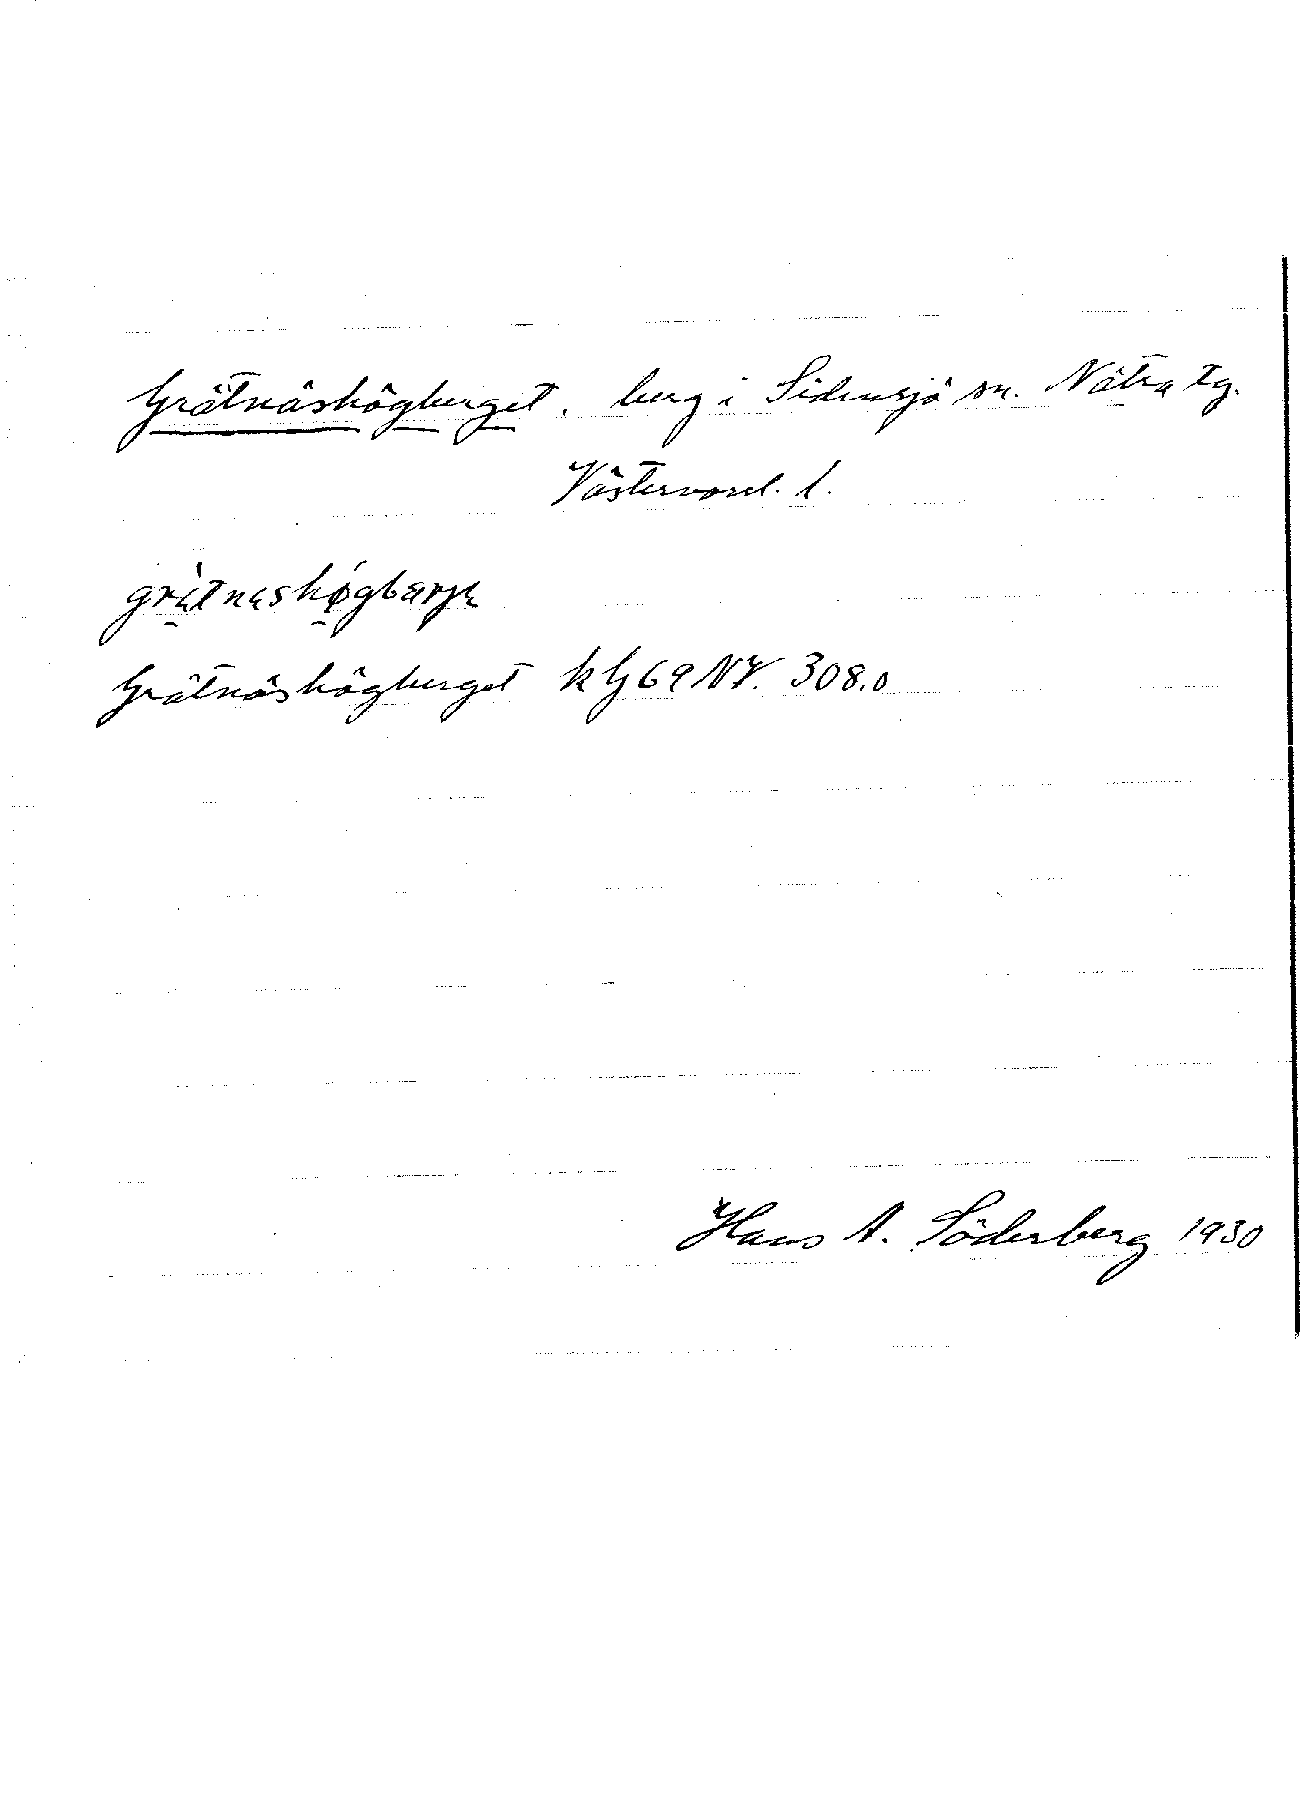 Grätnäshögberget. berg i Sidensjö sn. Nätra tg.
Västernorrl. l.
Grätnäshögberget kG 69 NV. 308.0
Hans A. Söderberg 1930